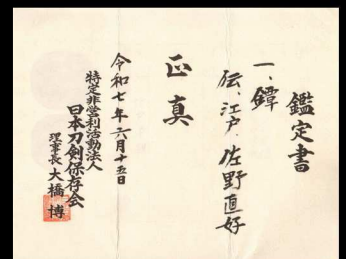 鑑定書
一、鐔
伝、江戸、佐野直好
正真
令和七年六月十五日
特定非営利活動法人
日本刀剣保存会
理事長 大橋 博